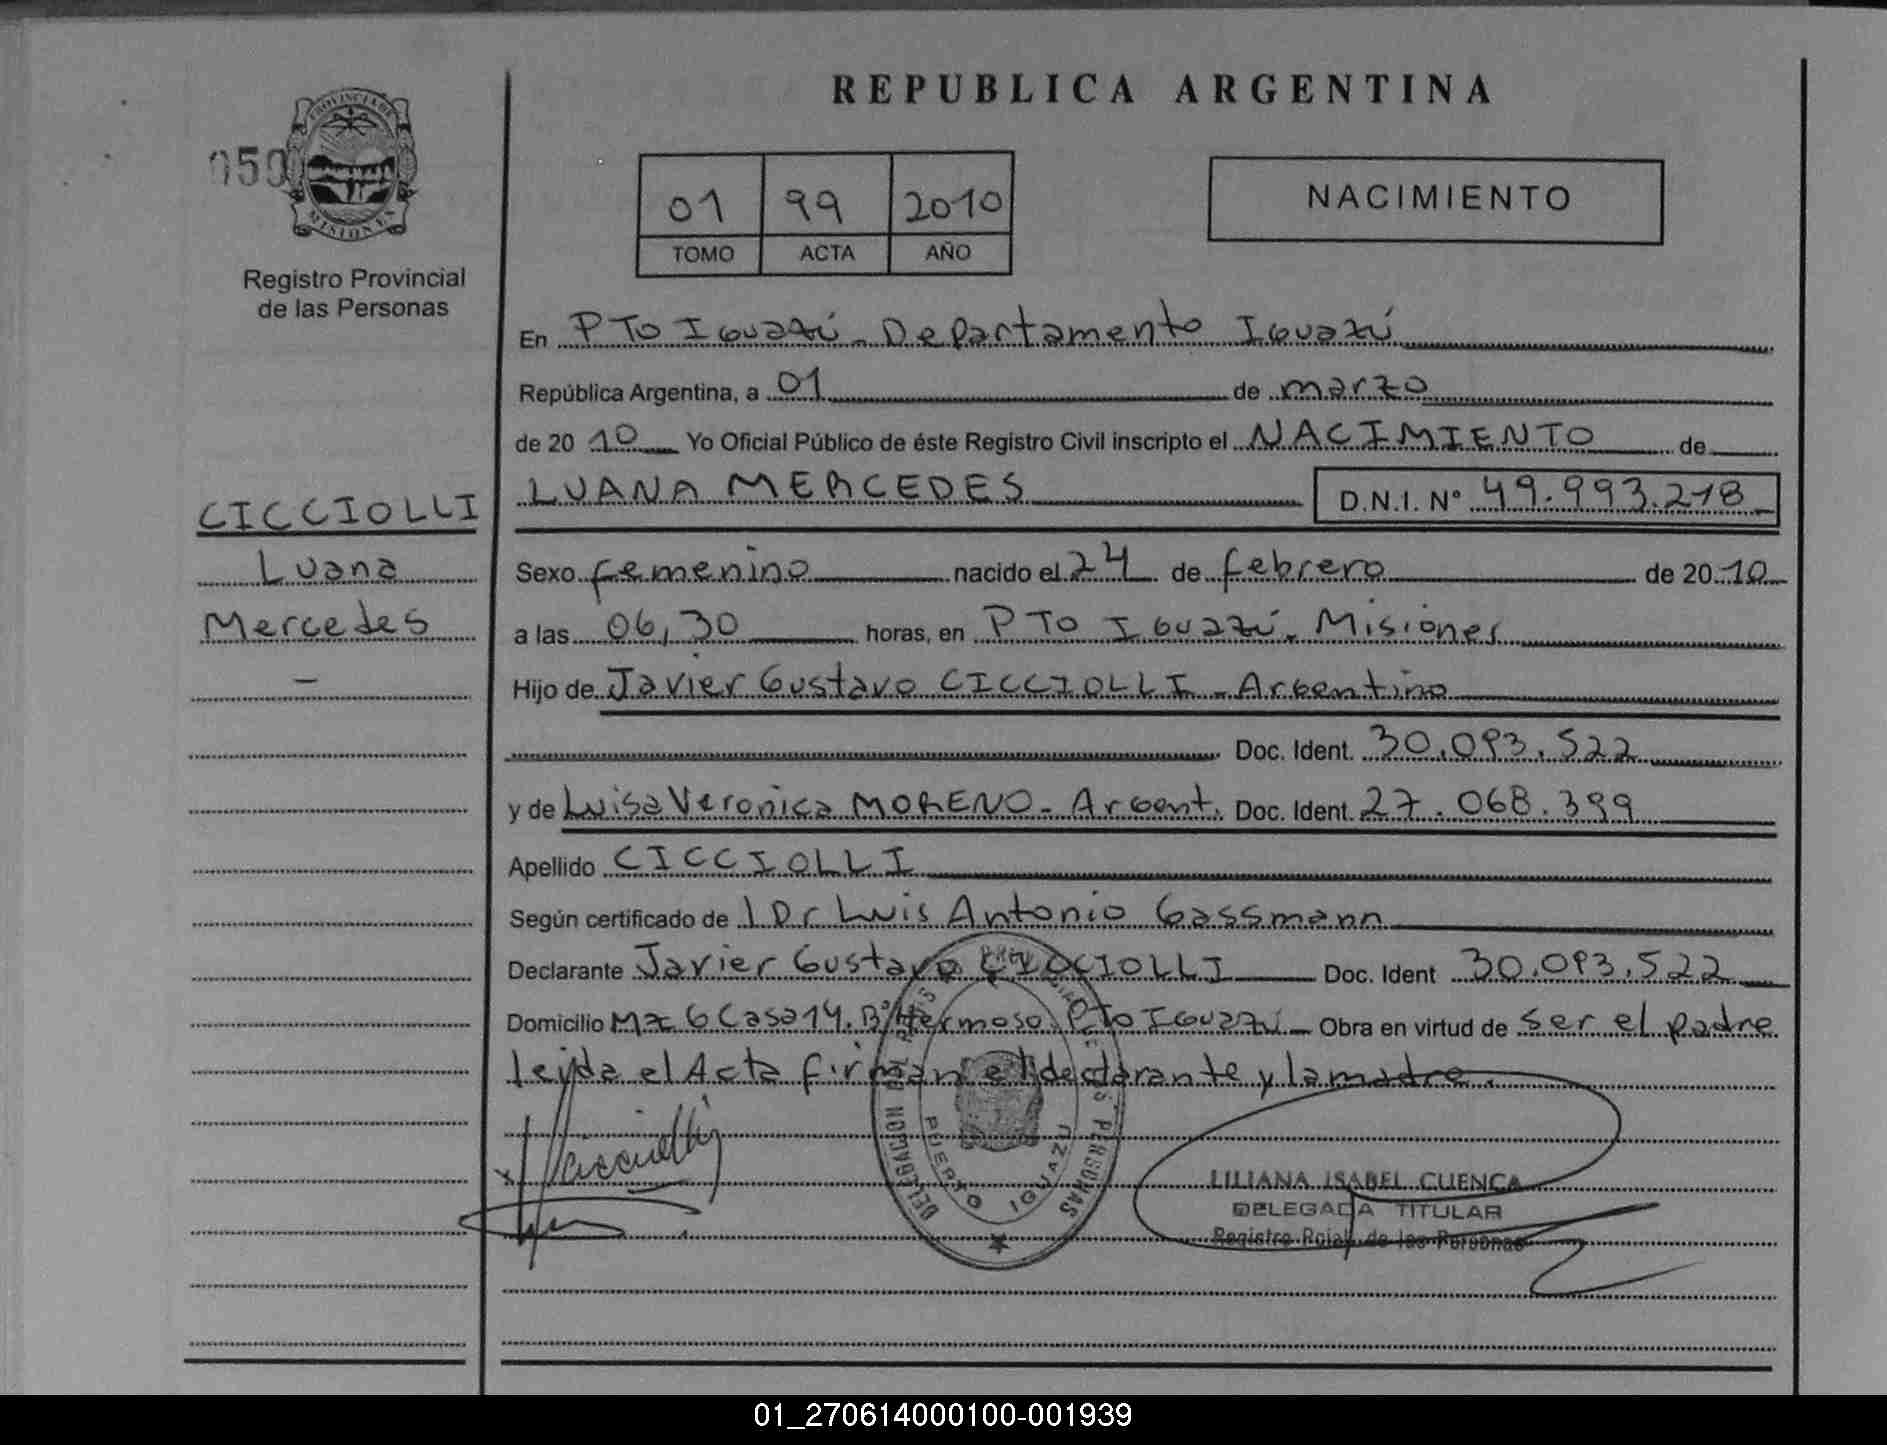 REPUBLICA ARGENTINA
050
PROVINCIA DE
MISIONES
Registro Provincial
de las Personas
01 99 2010
TOMO ACTA AÑO
NACIMIENTO
En PTO Iguazú - Departamento Iguazú
República Argentina, a 01 de marzo
de 20 10 Yo Oficial Público de éste Registro Civil inscripto el NACIMIENTO de
LUANA MERCEDES D.N.I. N° 49.993.218
CICCIOLLI
Luana
Mercedes
-
Sexo femenino nacido el 24 de febrero de 20 10
a las 06,30 horas, en PTO Iguazú. Misiones
Hijo de Javier Gustavo CICCIOLLI - Argentino
Doc. Ident. 30.093.522
y de Luisa Veronica MORENO - Argent. Doc. Ident. 27.068.399
Apellido CICCIOLLI
Según certificado de Dr Luis Antonio Gassmann
Declarante Javier Gustavo CICCIOLLI Doc. Ident 30.093.522
Domicilio Mz 6 Casa 14. B° Hermoso. PTO Iguazú Obra en virtud de ser el padre
leida el Acta firman el declarante y la madre.
PUERTO IGUAZU
LILIANA ISABEL CUENCA
DELEGADA TITULAR
Registro Pcial. de las Personas
01_270614000100-001939